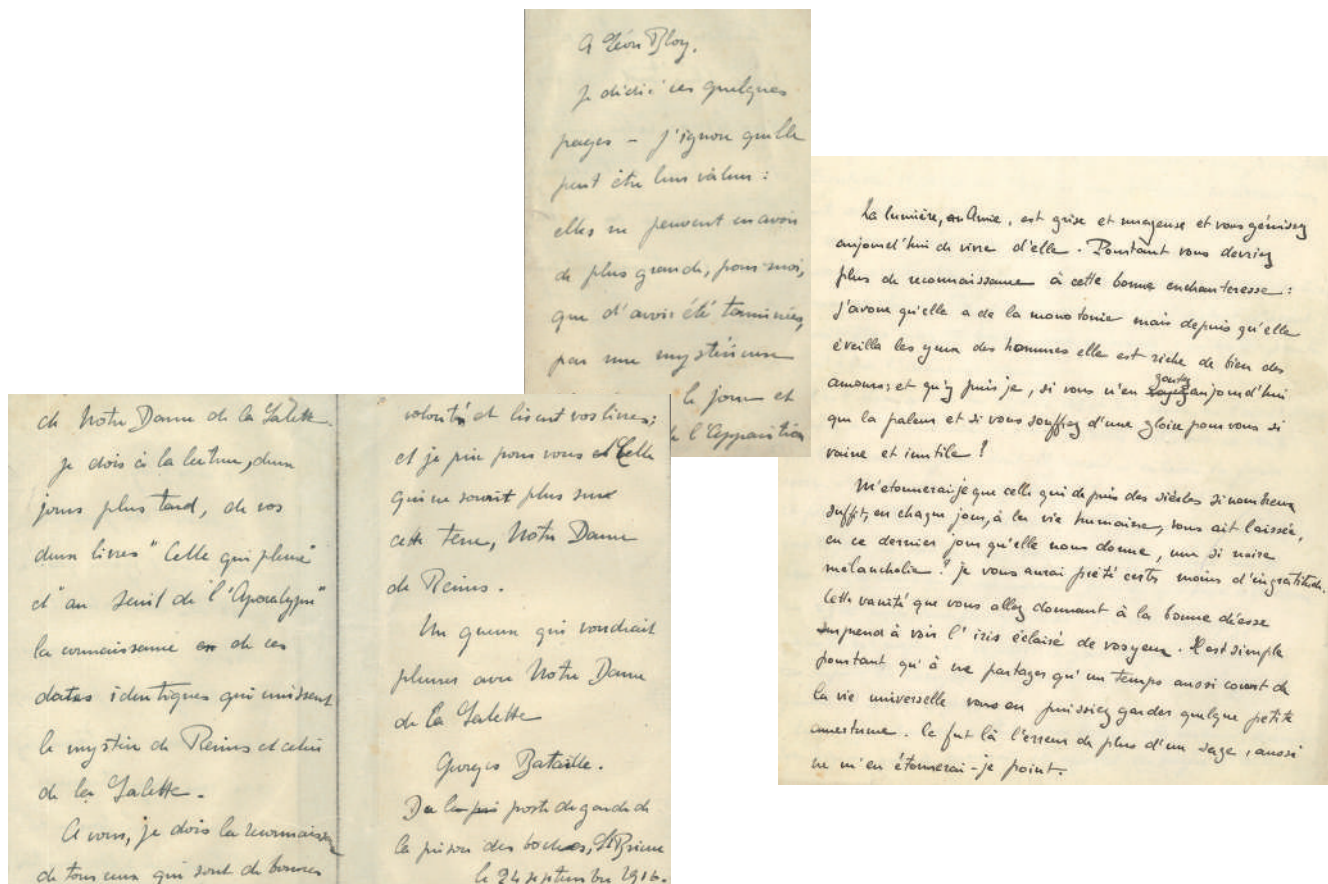 A Léon Bloy.
Je dédie ces quelques
pages – j'ignore quelle
peut être leur valeur :
elles ne peuvent en avoir
de plus grande, pour moi,
que d'avoir été terminées,
par une mystérieuse
le jour et
de l'Apparition
de Notre Dame de la Salette.
Je dois à la lecture, deux
jours plus tard, de vos
deux livres "Celle qui pleure"
et "au seuil de l'Apocalypse"
la connaissance de ces
dates identiques qui unissent
le mystère de Reims et celui
de la Salette.
A vous, je dois la reconnaissance
de tous ceux qui sont de bonnes
volontés et lisent vos livres ;
et je prie pour vous Celle
qui ne sourit plus sur
cette terre, Notre Dame
de Reims.
Un gueux qui voudrait
pleurer avec Notre Dame
de La Salette
Georges Bataille.
Du poste de garde de
la prison des boches, St Brieuc
le 24 septembre 1916.
La lumière, Amie, est grise et nuageuse et vous gémissez
aujourd'hui de vivre d'elle. Pourtant vous devriez
plus de reconnaissance à cette bonne enchanteresse :
j'avoue qu'elle a de la monotonie mais depuis qu'elle
éveilla les yeux des hommes elle est riche de bien des
amours ; et qu'y puis je, si vous n'en goutez aujourd'hui
que la paleur et si vous souffrez d'une gloire pour vous si
vaine et inutile !
M'etonnerai je que celle qui depuis des siècles si nombreux
suffit, en chaque jour, à la vie humaine, vous ait laissée,
en ce dernier jour qu'elle nous donne, une si noire
mélancholie ? je vous aurai prêté certes moins d'ingratitude.
Cette vanité que vous allez donnant à la bonne déesse
surprend à voir l'iris éclairé de vos yeux. Il est simple
pourtant qu'à ne partager qu'un temps aussi court de
la vie universelle vous en puissiez garder quelque petite
amertume. Ce fut là l'erreur de plus d'un sage, aussi
ne m'en étonnerai-je point.